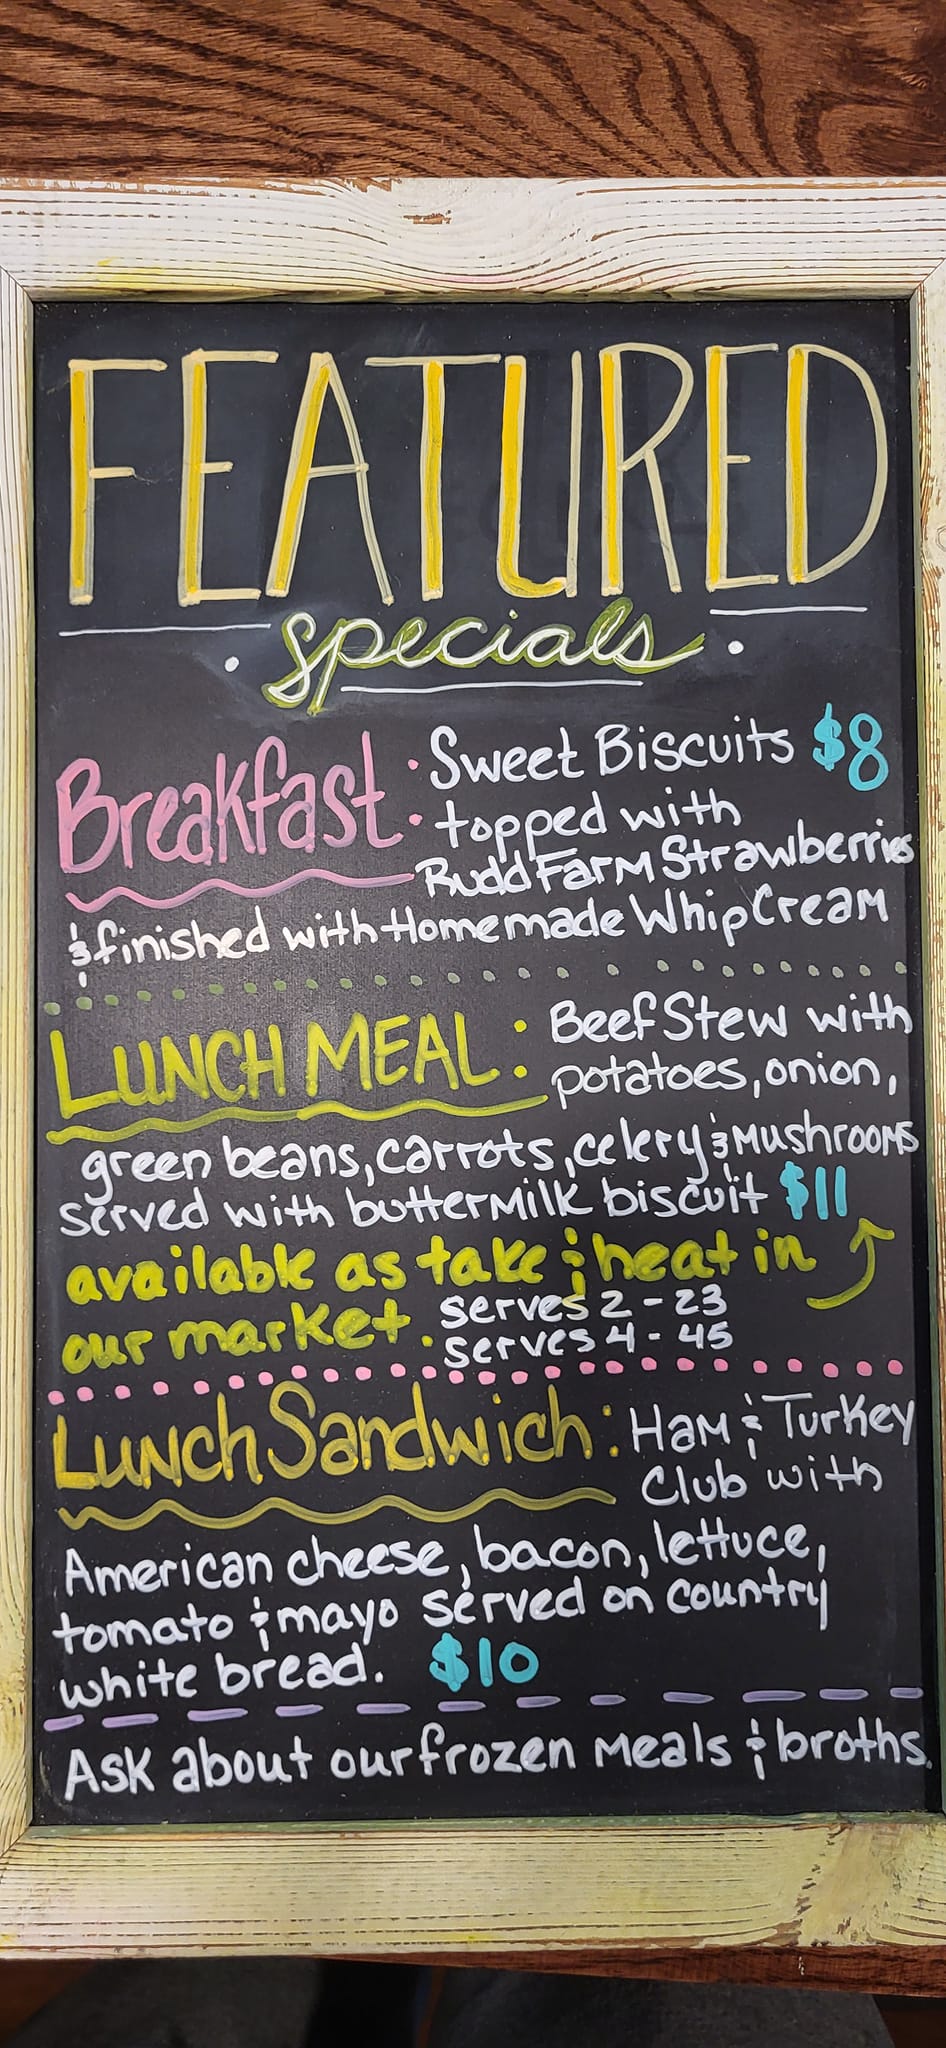 FEATURED
specials
Breakfast: Sweet Biscuits $8
topped with
Rudd Farm Strawberries
& finished with Homemade Whip Cream
LUNCH MEAL: Beef Stew with
potatoes, onion,
green beans, carrots, celery & Mushrooms
served with buttermilk biscuit $11
available as take & heat in
our market. serves 2 - 23
serves 4 - 45
Lunch Sandwich: Ham & Turkey
Club with
American cheese, bacon, lettuce,
tomato & mayo served on country
white bread. $10
Ask about our frozen meals & broths.